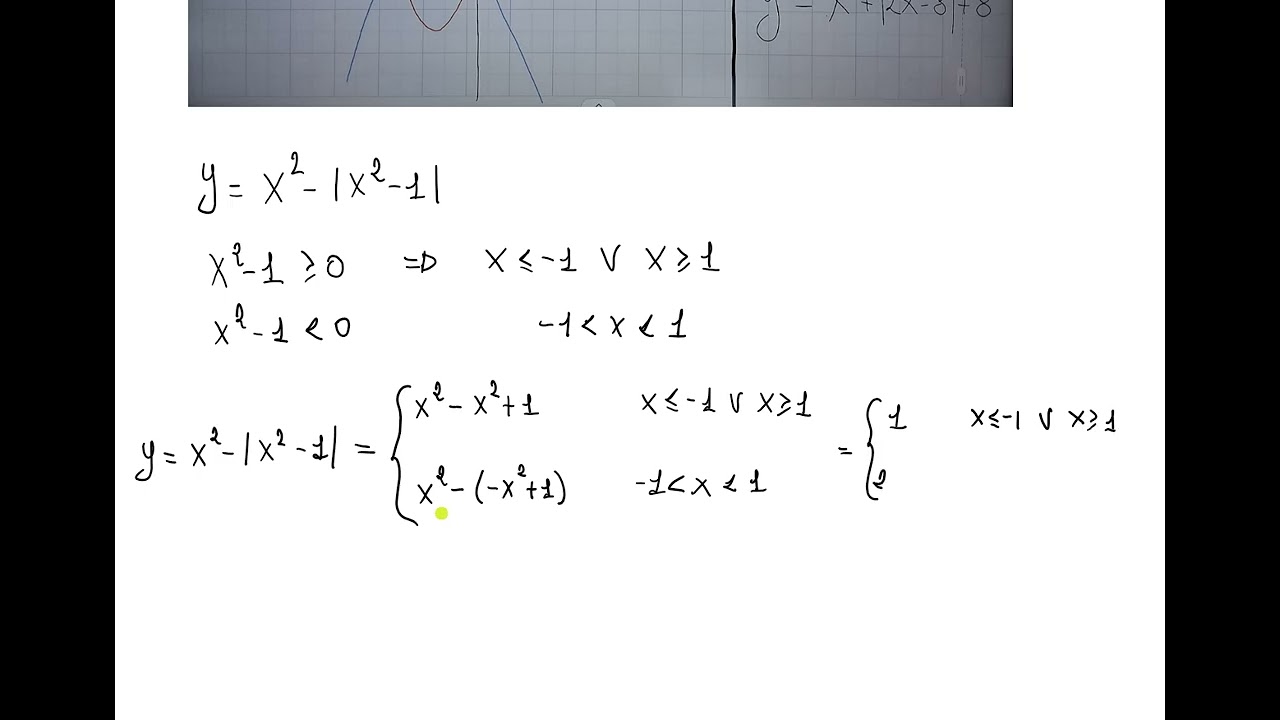 y = x + |2x-8|+8
y = x² - |x² - 1|
x² - 1 ⩾ 0 ⇒ x ⩽ -1 ∨ x ⩾ 1
x² - 1 < 0 -1 < x < 1
y = x² - |x² - 1| = { x² - x² + 1 x ⩽ -1 ∨ x ⩾ 1 = { 1 x ⩽ -1 ∨ x ⩾ 1
x² - (-x² + 1) -1 < x < 1 2